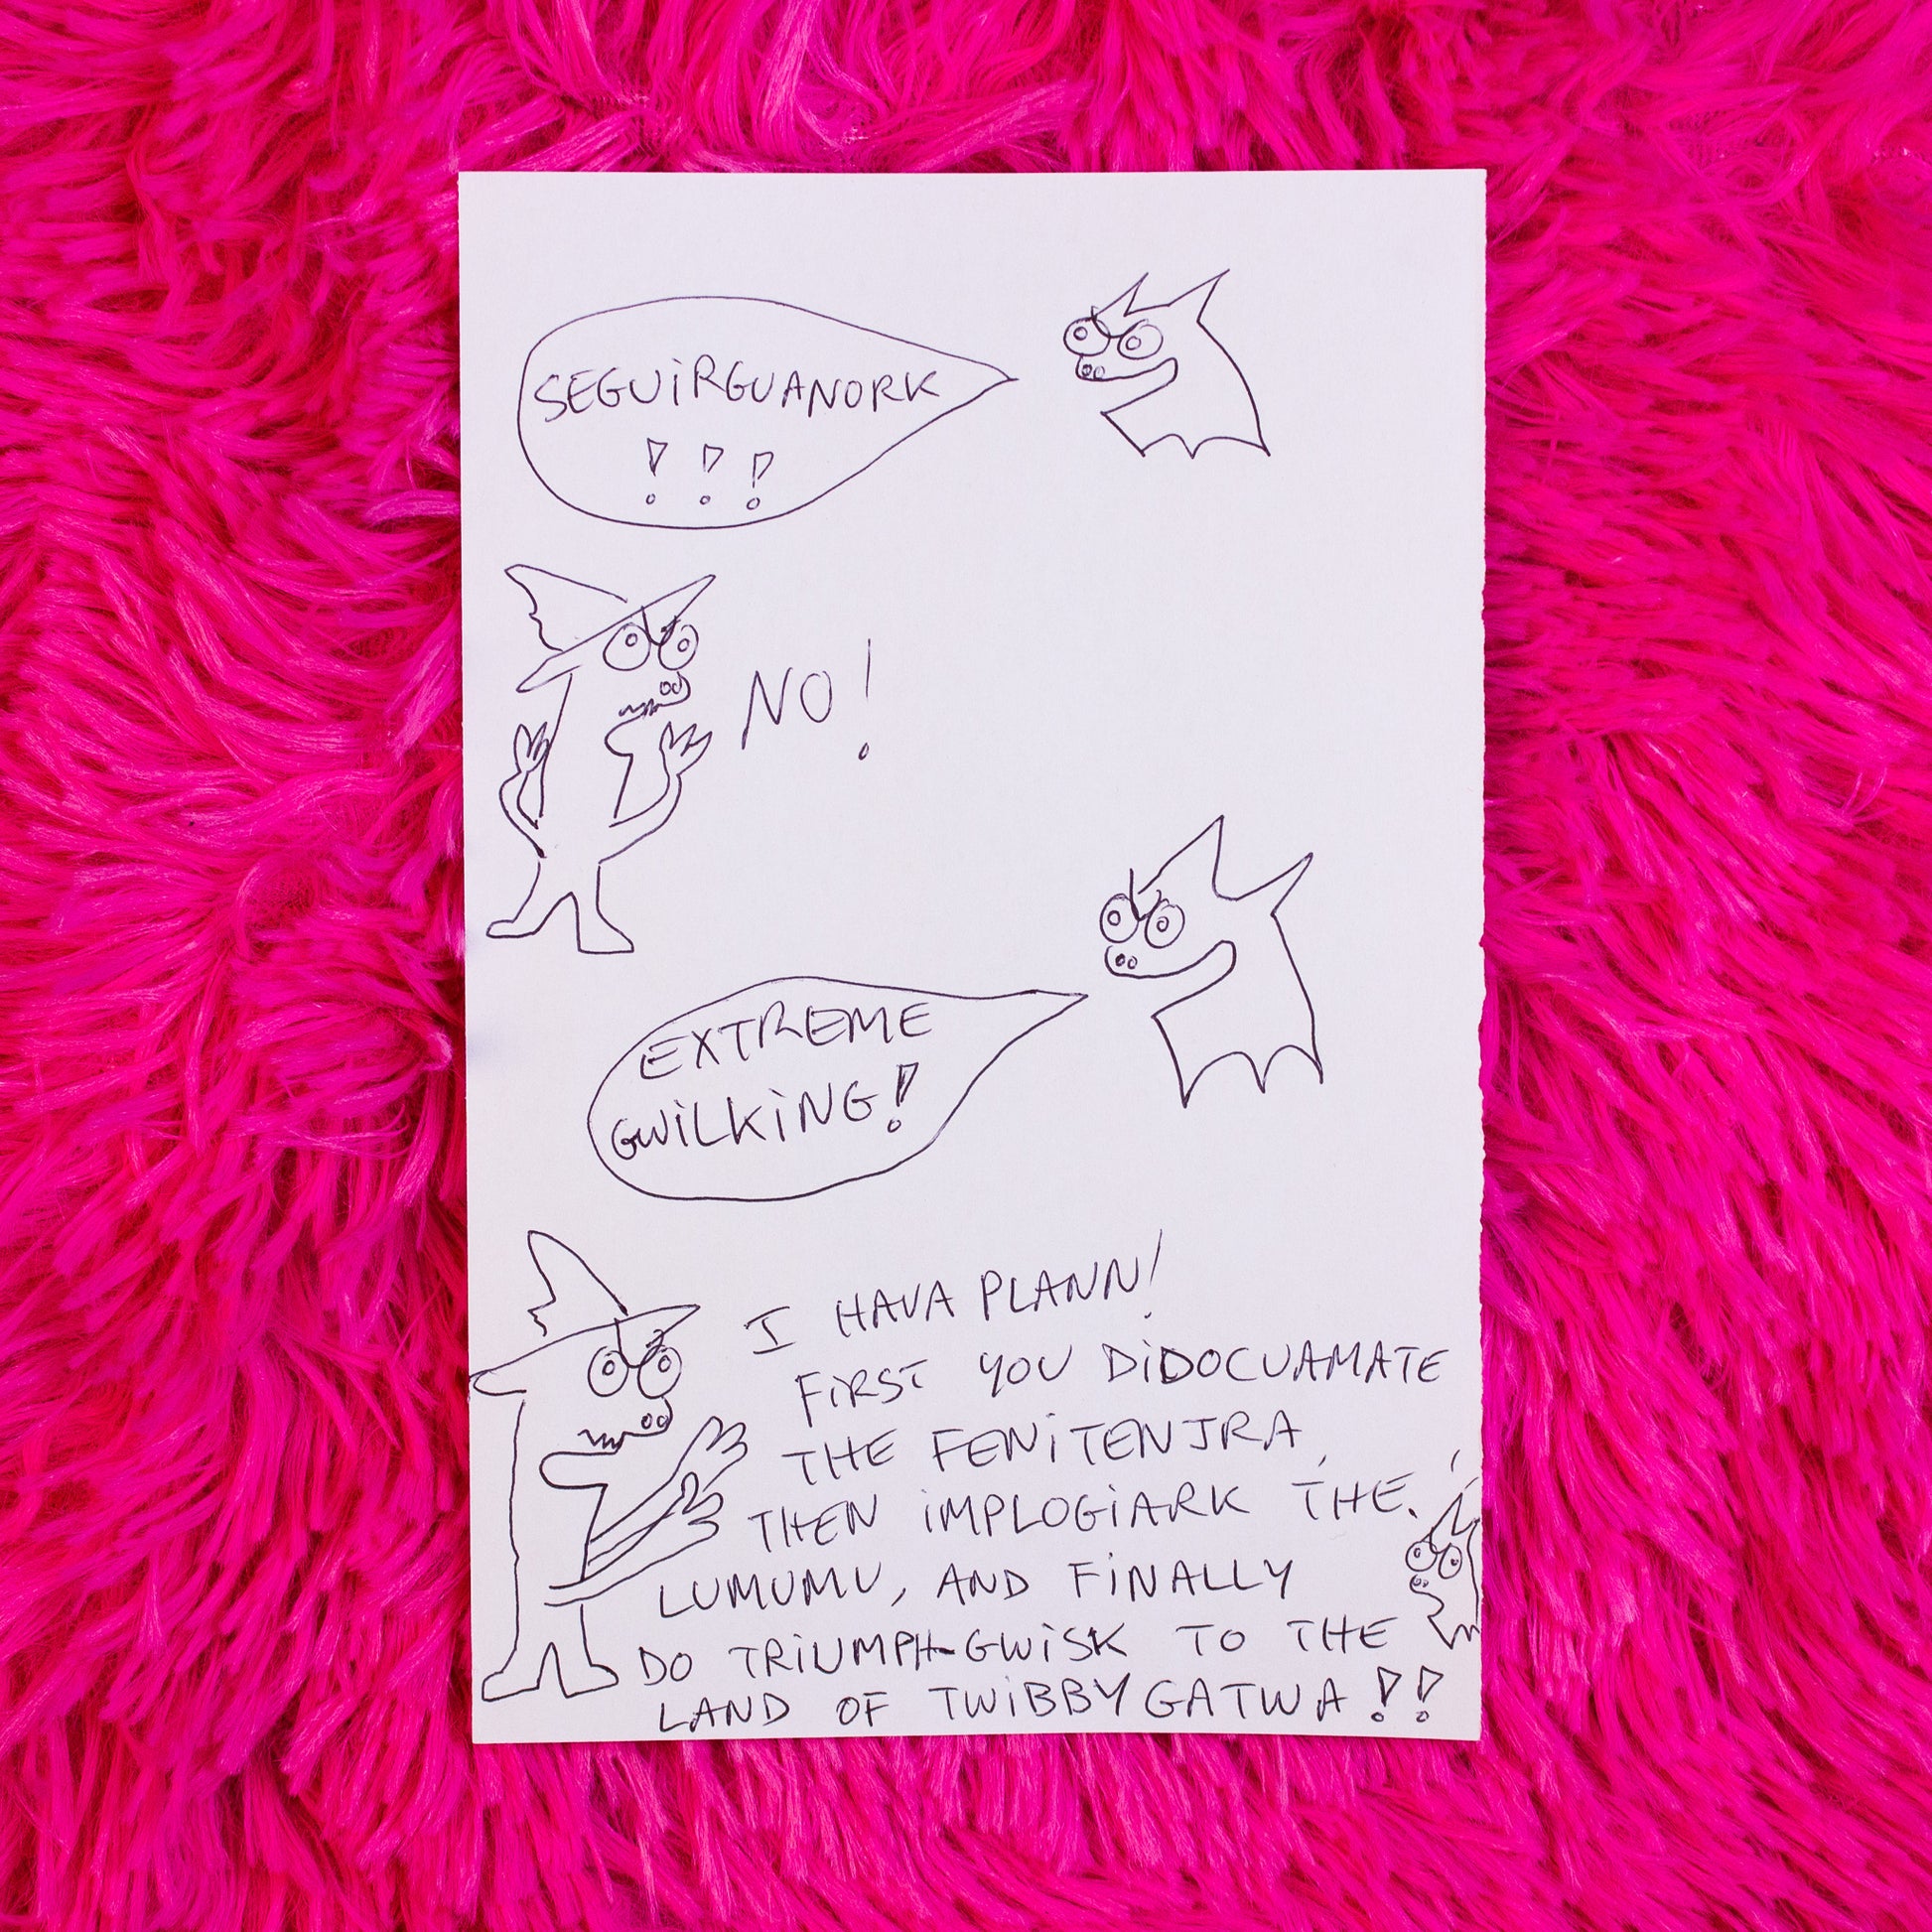 SEGUiRGUANORK
!!!
NO!
EXTREME
GWiLKiNG!
I HAVA PLANN!
FiRST YOU DiDOCUAMATE
THE FENiTENJRA,
THEN iMPLOGiARK THE
LUMUMU, AND FiNALLY
DO TRiUMPH-GWiSK TO THE
LAND OF TWiBBYGATWA!!